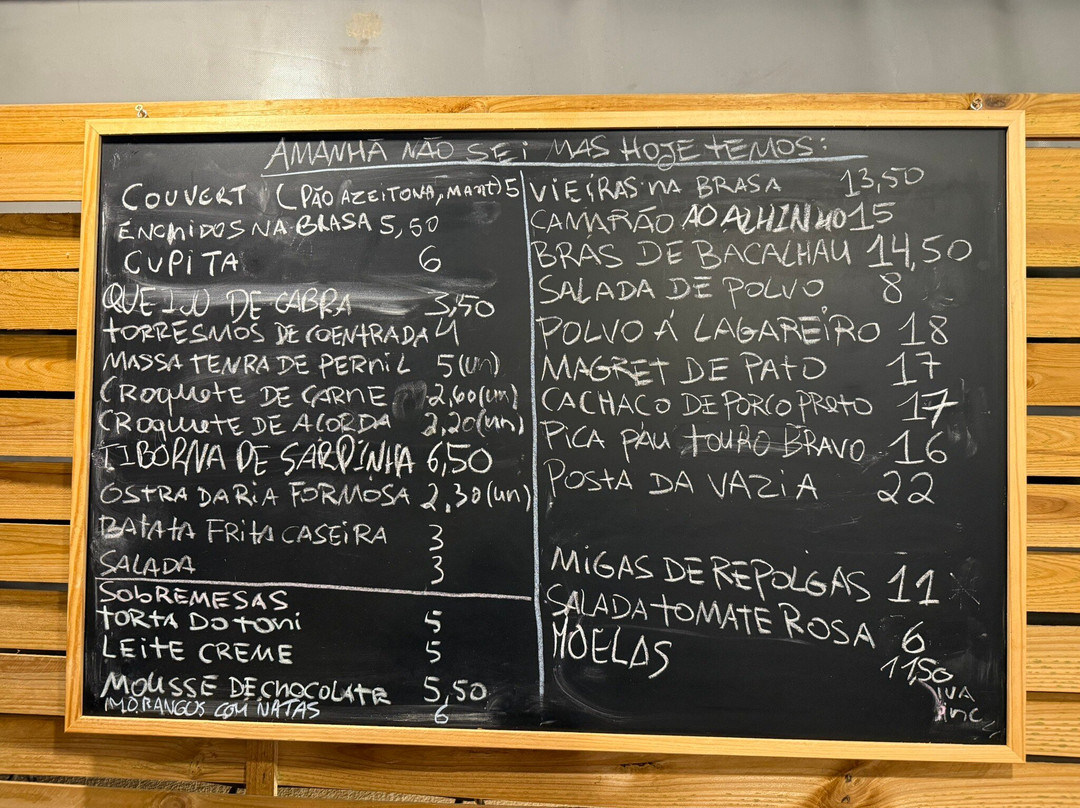 AMANHÃ NÃO SEI MAS HOJE TEMOS:
COUVERT (PÃO AZEITONA, MANT) 5
ENCHIDOS NA BRASA 5,50
CUPITA 6
QUEIJO DE CABRA 3,50
TORRESMOS DE COENTRADA 4
MASSA TENRA DE PERNIL 5 (UN)
CROQUETE DE CARNE 2,60 (UN)
CROQUETE DE AÇORDA 2,20 (UN)
TIBORNA DE SARDINHA 6,50
OSTRA DA RIA FORMOSA 2,30 (UN)
BATATA FRITA CASEIRA 3
SALADA 3
SOBREMESAS
TORTA DO TONI 5
LEITE CREME 5
MOUSSE DE CHOCOLATE 5,50
MORANGOS COM NATAS 6
VIEIRAS NA BRASA 13,50
CAMARÃO AO ALHINHO 15
BRÁS DE BACALHAU 14,50
SALADA DE POLVO 8
POLVO Á LAGAREIRO 18
MAGRET DE PATO 17
CACHAÇO DE PORCO PRETO 17
PICA PAU TOURO BRAVO 16
POSTA DA VAZIA 22
MIGAS DE REPOLGAS 11
SALADA TOMATE ROSA 6
MOELAS 11,50
IVA inc.